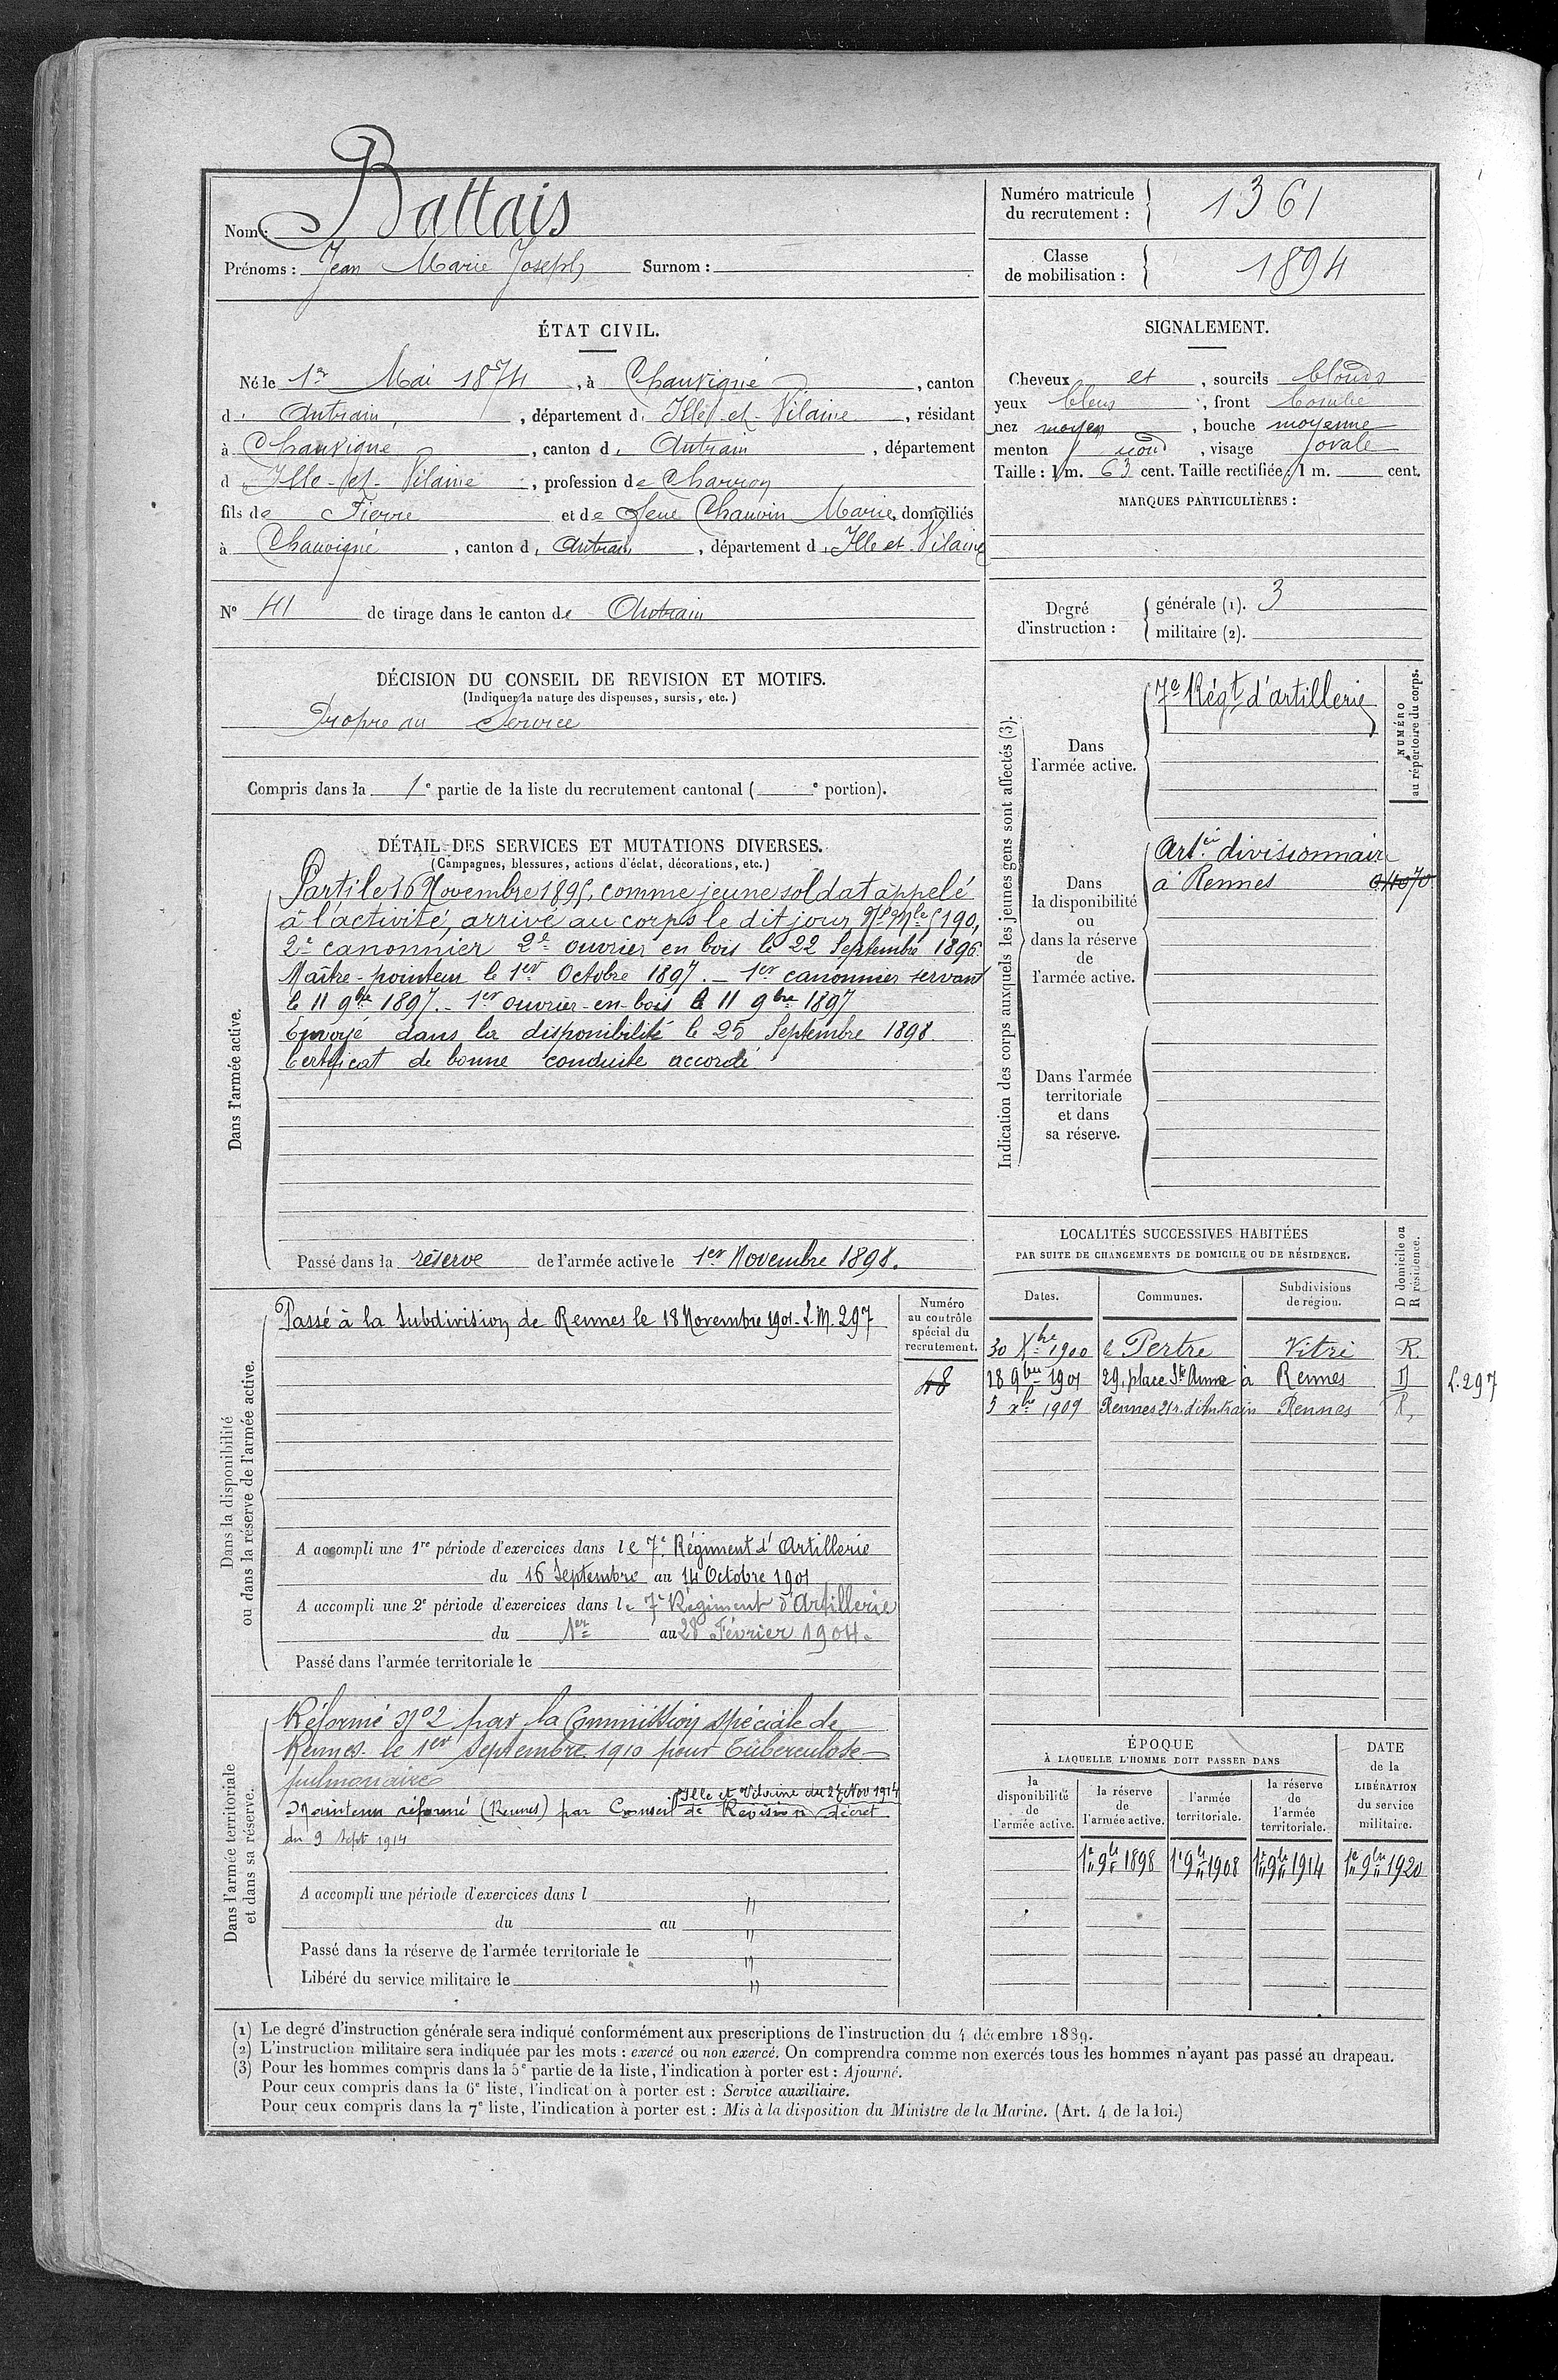 Nom : Battais
Prénoms : Jean Marie Joseph Surnom :
Numéro matricule du recrutement : 1361
Classe de mobilisation : 1894
ÉTAT CIVIL.
Né le 1er Mai 1874, à Chauvigné, canton
d' Antrain, département d' Ille-et-Vilaine, résidant
à Chauvigné, canton d' Antrain, département
d' Ille-et-Vilaine, profession de Charron
fils de Pierre et de feue Chauvin Marie, domiciliés
à Chauvigné, canton d' Antrain, département d' Ille et Vilaine
N° 41 de tirage dans le canton de Antrain
SIGNALEMENT.
Cheveux et, sourcils blonds
yeux bleus, front bombé
nez moyen, bouche moyenne
menton rond, visage ovale
Taille : 1 m. 63 cent. Taille rectifiée : 1 m. cent.
MARQUES PARTICULIÈRES :
Degré d'instruction : générale (1). 3
militaire (2).
DÉCISION DU CONSEIL DE REVISION ET MOTIFS.
(Indiquer la nature des dispenses, sursis, etc.)
Propre au Service
Compris dans la 1e partie de la liste du recrutement cantonal ( e portion).
DÉTAIL DES SERVICES ET MUTATIONS DIVERSES.
(Campagnes, blessures, actions d'éclat, décorations, etc.)
Dans l'armée active.
Parti le 16 Novembre 1895, comme jeune soldat appelé
à l'activité, arrivé au corps le dit jour, 5190,
2e canonnier 2e ouvrier en bois le 22 Septembre 1896.
Maître-pointeur le 1er Octobre 1897. - 1er canonnier servant
le 11 9bre 1897. - 1er ouvrier-en-bois le 11 9bre 1897
Envoyé dans la disponibilité le 25 Septembre 1898.
Certificat de bonne conduite accordé.
Passé dans la réserve de l'armée active le 1er Novembre 1898.
Indication des corps auxquels les jeunes gens sont affectés (3).
NUMÉRO au répertoire du corps.
Dans l'armée active.
7e Régt d'artillerie
Dans la disponibilité ou dans la réserve de l'armée active.
Artie divisionnaire
à Rennes
Dans l'armée territoriale et dans sa réserve.
Dans la disponibilité ou dans la réserve de l'armée active.
Passé à la Subdivision de Rennes le 18 Novembre 1901 - L.M. 297
Numéro au contrôle spécial du recrutement.
48
A accompli une 1re période d'exercices dans le 7e Régiment d'Artillerie
du 16 Septembre au 14 Octobre 1901
A accompli une 2e période d'exercices dans le 7e Régiment d'Artillerie
du 1er au 28 Février 1904.
Passé dans l'armée territoriale le
LOCALITÉS SUCCESSIVES HABITÉES
PAR SUITE DE CHANGEMENTS DE DOMICILE OU DE RÉSIDENCE.
Dates. Communes. Subdivisions de région. D domicile ou R résidence.
30 Xbre 1900 le Pertre Vitré R.
18 9bre 1901 29, place Ste Anne à Rennes D L. 297
5 xbre 1909 Rennes 21 r. d'Antrain Rennes R.
Dans l'armée territoriale et dans sa réserve.
Réformé N°2 par la Commission spéciale de
Rennes le 1er Septembre 1910 pour tuberculose
pulmonaire
Ille et Vilaine du 24 Nov 1914
Maintenu réformé (Rennes) par Conseil de Revision décret
du 9 Sept 1914
A accompli une période d'exercices dans l "
du au "
Passé dans la réserve de l'armée territoriale le "
Libéré du service militaire le "
ÉPOQUE
À LAQUELLE L'HOMME DOIT PASSER DANS
DATE de la LIBÉRATION du service militaire.
la disponibilité de l'armée active. la réserve de l'armée active. l'armée territoriale. la réserve de l'armée territoriale.
1er 9bre 1898 1er 9bre 1908 1er 9bre 1914 1er 9bre 1920
(1) Le degré d'instruction générale sera indiqué conformément aux prescriptions de l'instruction du 4 décembre 1889.
(2) L'instruction militaire sera indiquée par les mots : exercé ou non exercé. On comprendra comme non exercés tous les hommes n'ayant pas passé au drapeau.
(3) Pour les hommes compris dans la 5e partie de la liste, l'indication à porter est : Ajourné.
Pour ceux compris dans la 6e liste, l'indication à porter est : Service auxiliaire.
Pour ceux compris dans la 7e liste, l'indication à porter est : Mis à la disposition du Ministre de la Marine. (Art. 4 de la loi.)